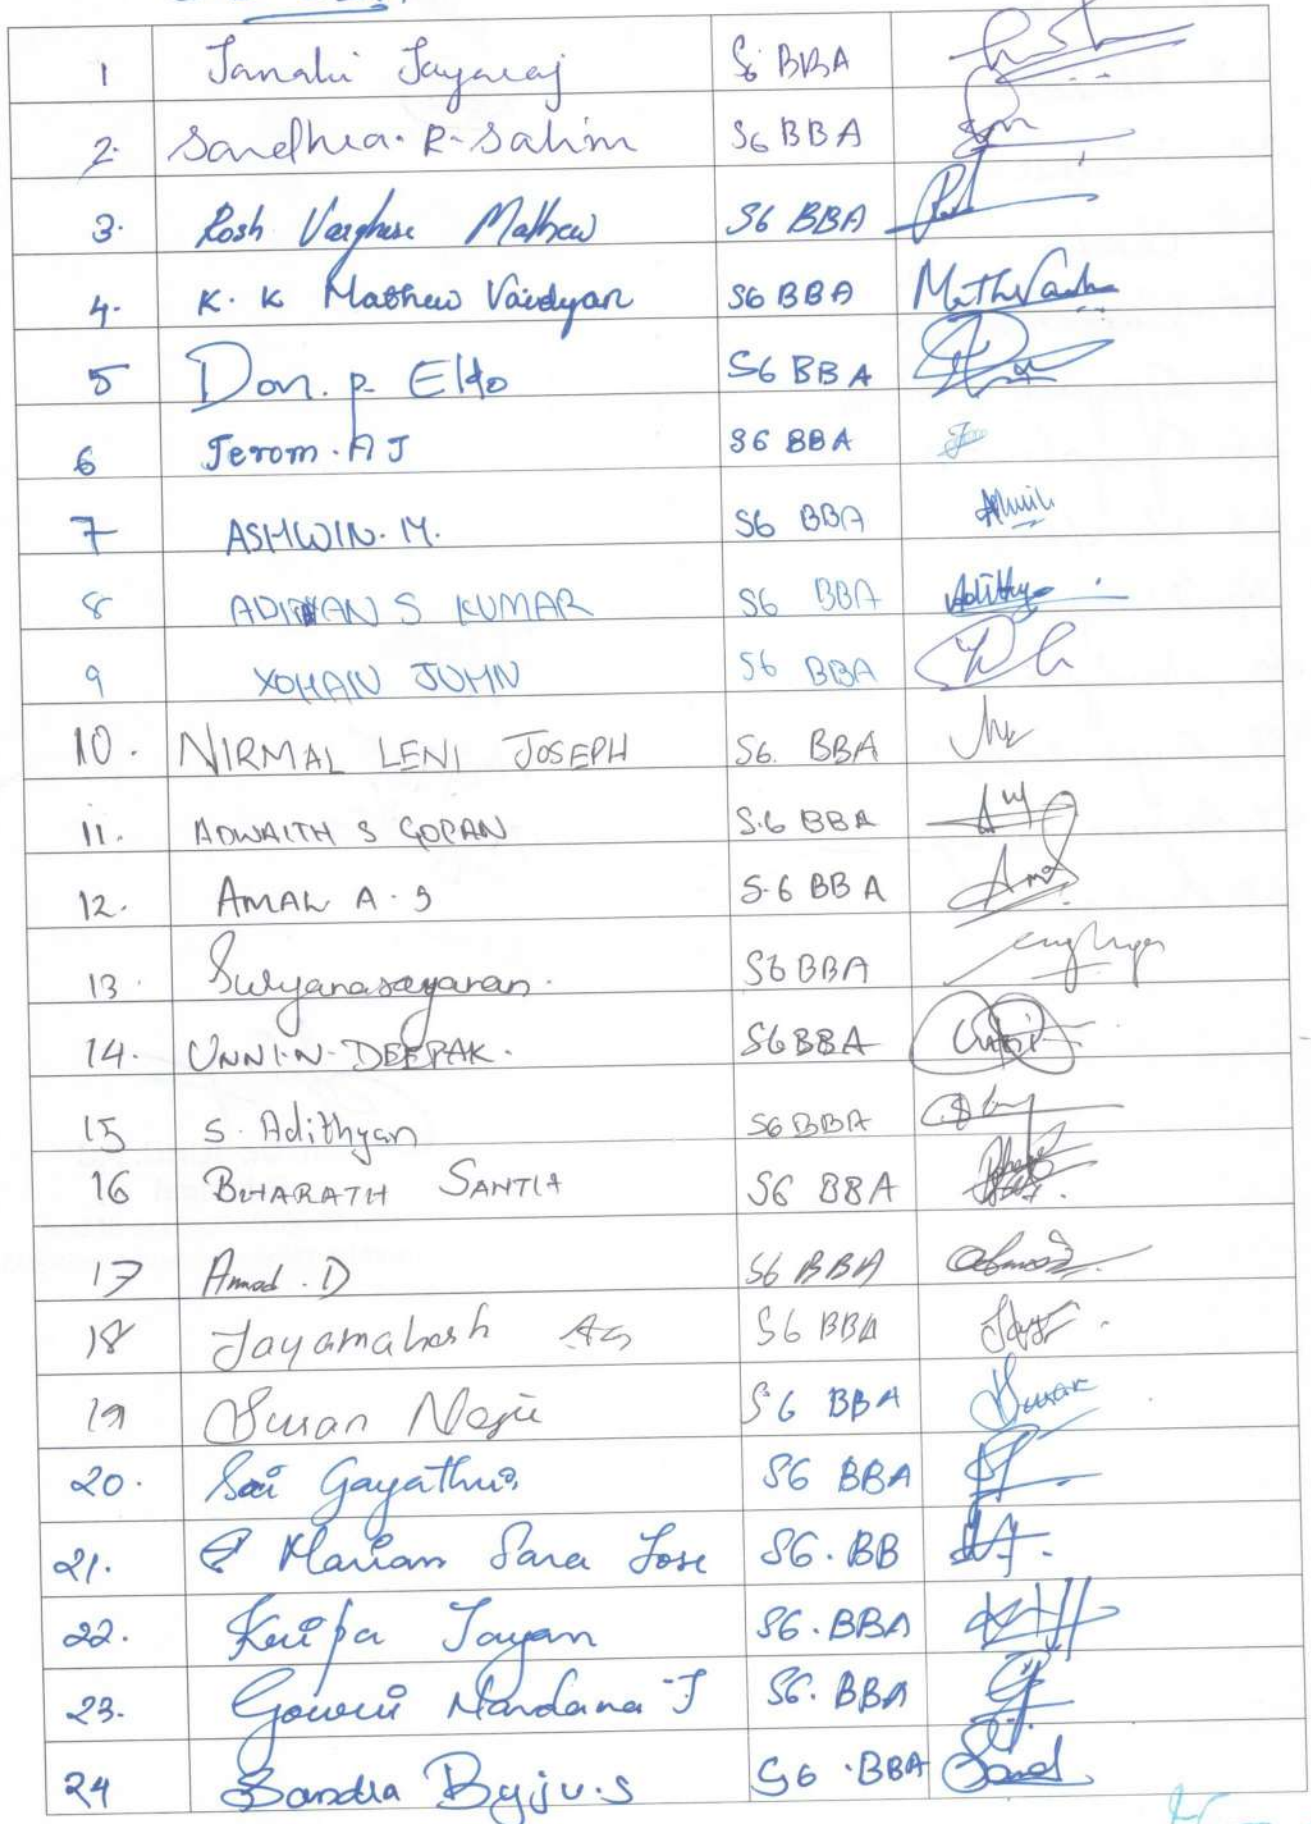 1 Janaki Jayaraj S6 BBA
2. Sandhra. R. Salim S6 BBA
3. Rosh Varghese Mathew S6 BBA
4. K. K Mathew Vaidyan S6 BBA
5 Don. P. Eldo S6 BBA
6 Jerom. A J S6 BBA
7 ASHWIN. M. S6 BBA Ashwin
8 ADITHYAN S KUMAR S6 BBA Adithya
9 YOHAN JOHN S6 BBA
10. NIRMAL LENI JOSEPH S6. BBA
11. ADWAITH S GOPAN S.6 BBA
12. AMAL A. S S.6 BBA Amal
13. Suryanarayanan. S6 BBA
14. UNNI.N.DEEPAK. S6BBA
15 S. Adithyan S6 BBA
16 BHARATH SANTIA S6 BBA
17 Amad. D S6 BBA
18 Jayamahesh AG S6 BBA
19 Susan Neju S6 BBA Susan
20. Sai Gayathri S6 BBA
21. Mariam Sara Jose S6. BB
22. Kripa Jayan S6. BBA
23. Gowri Nandana J S6. BBA
24 Sandra Byju.S S6 .BBA Sand